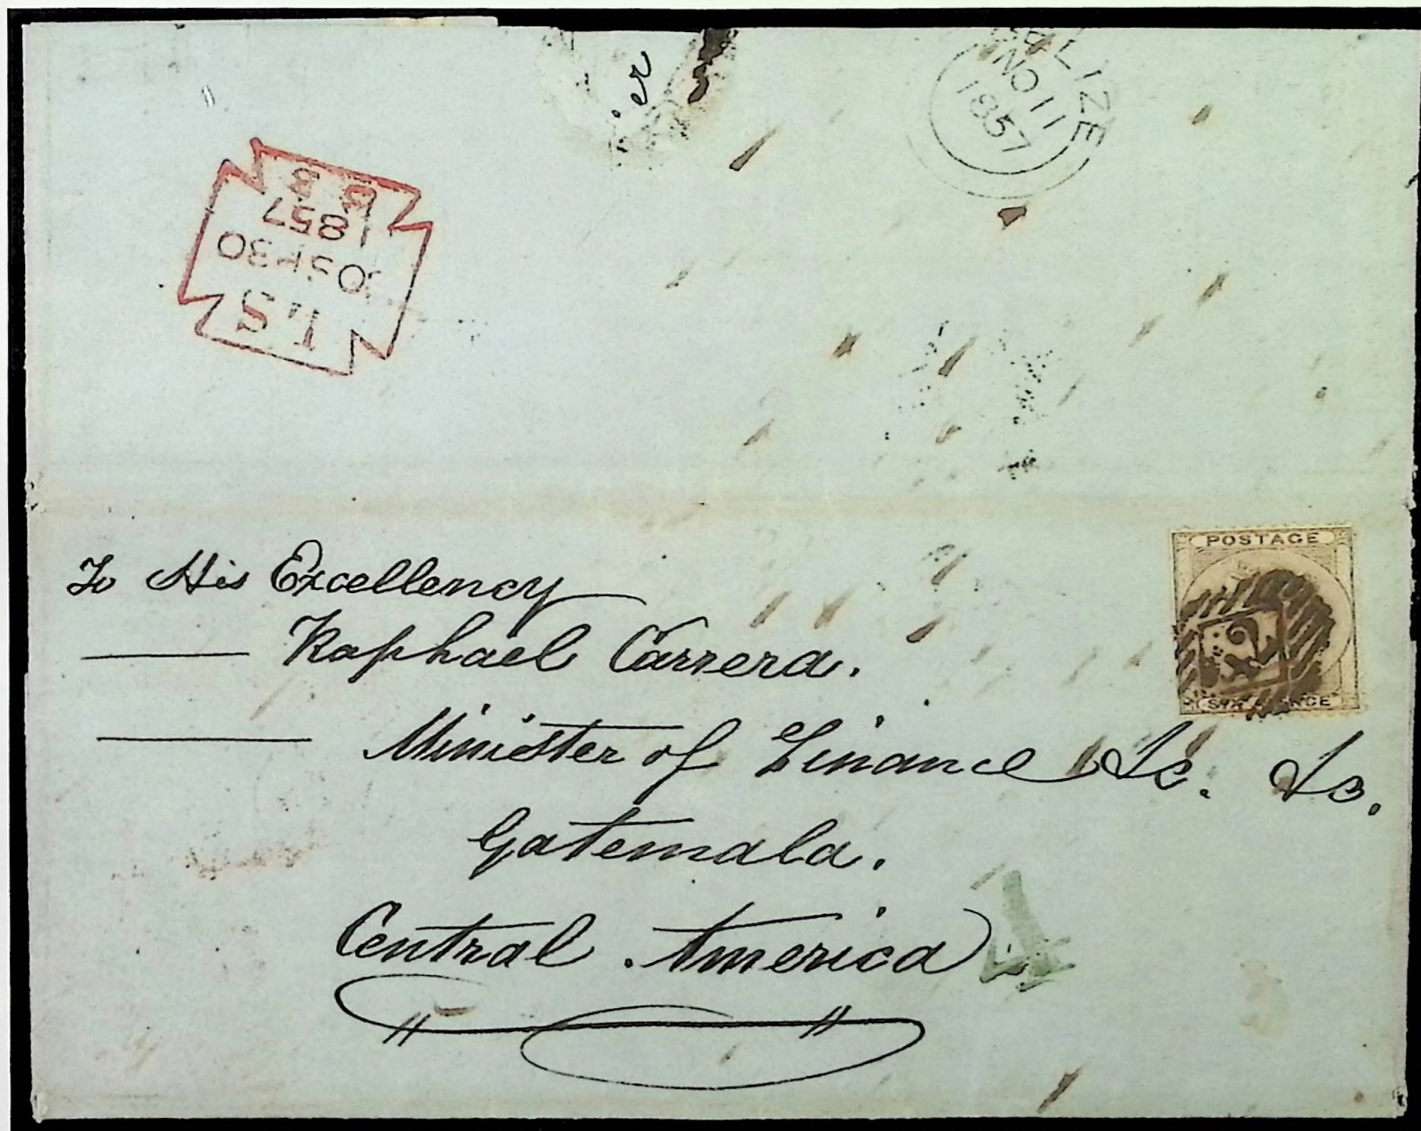 er
BELIZE
NO 11
1857
1857
SP 30
LS
POSTAGE
SIX PENCE
To His Excellency
Raphael Carrera.
Minister of Finance &c. &c.
Gatemala.
Central America
4